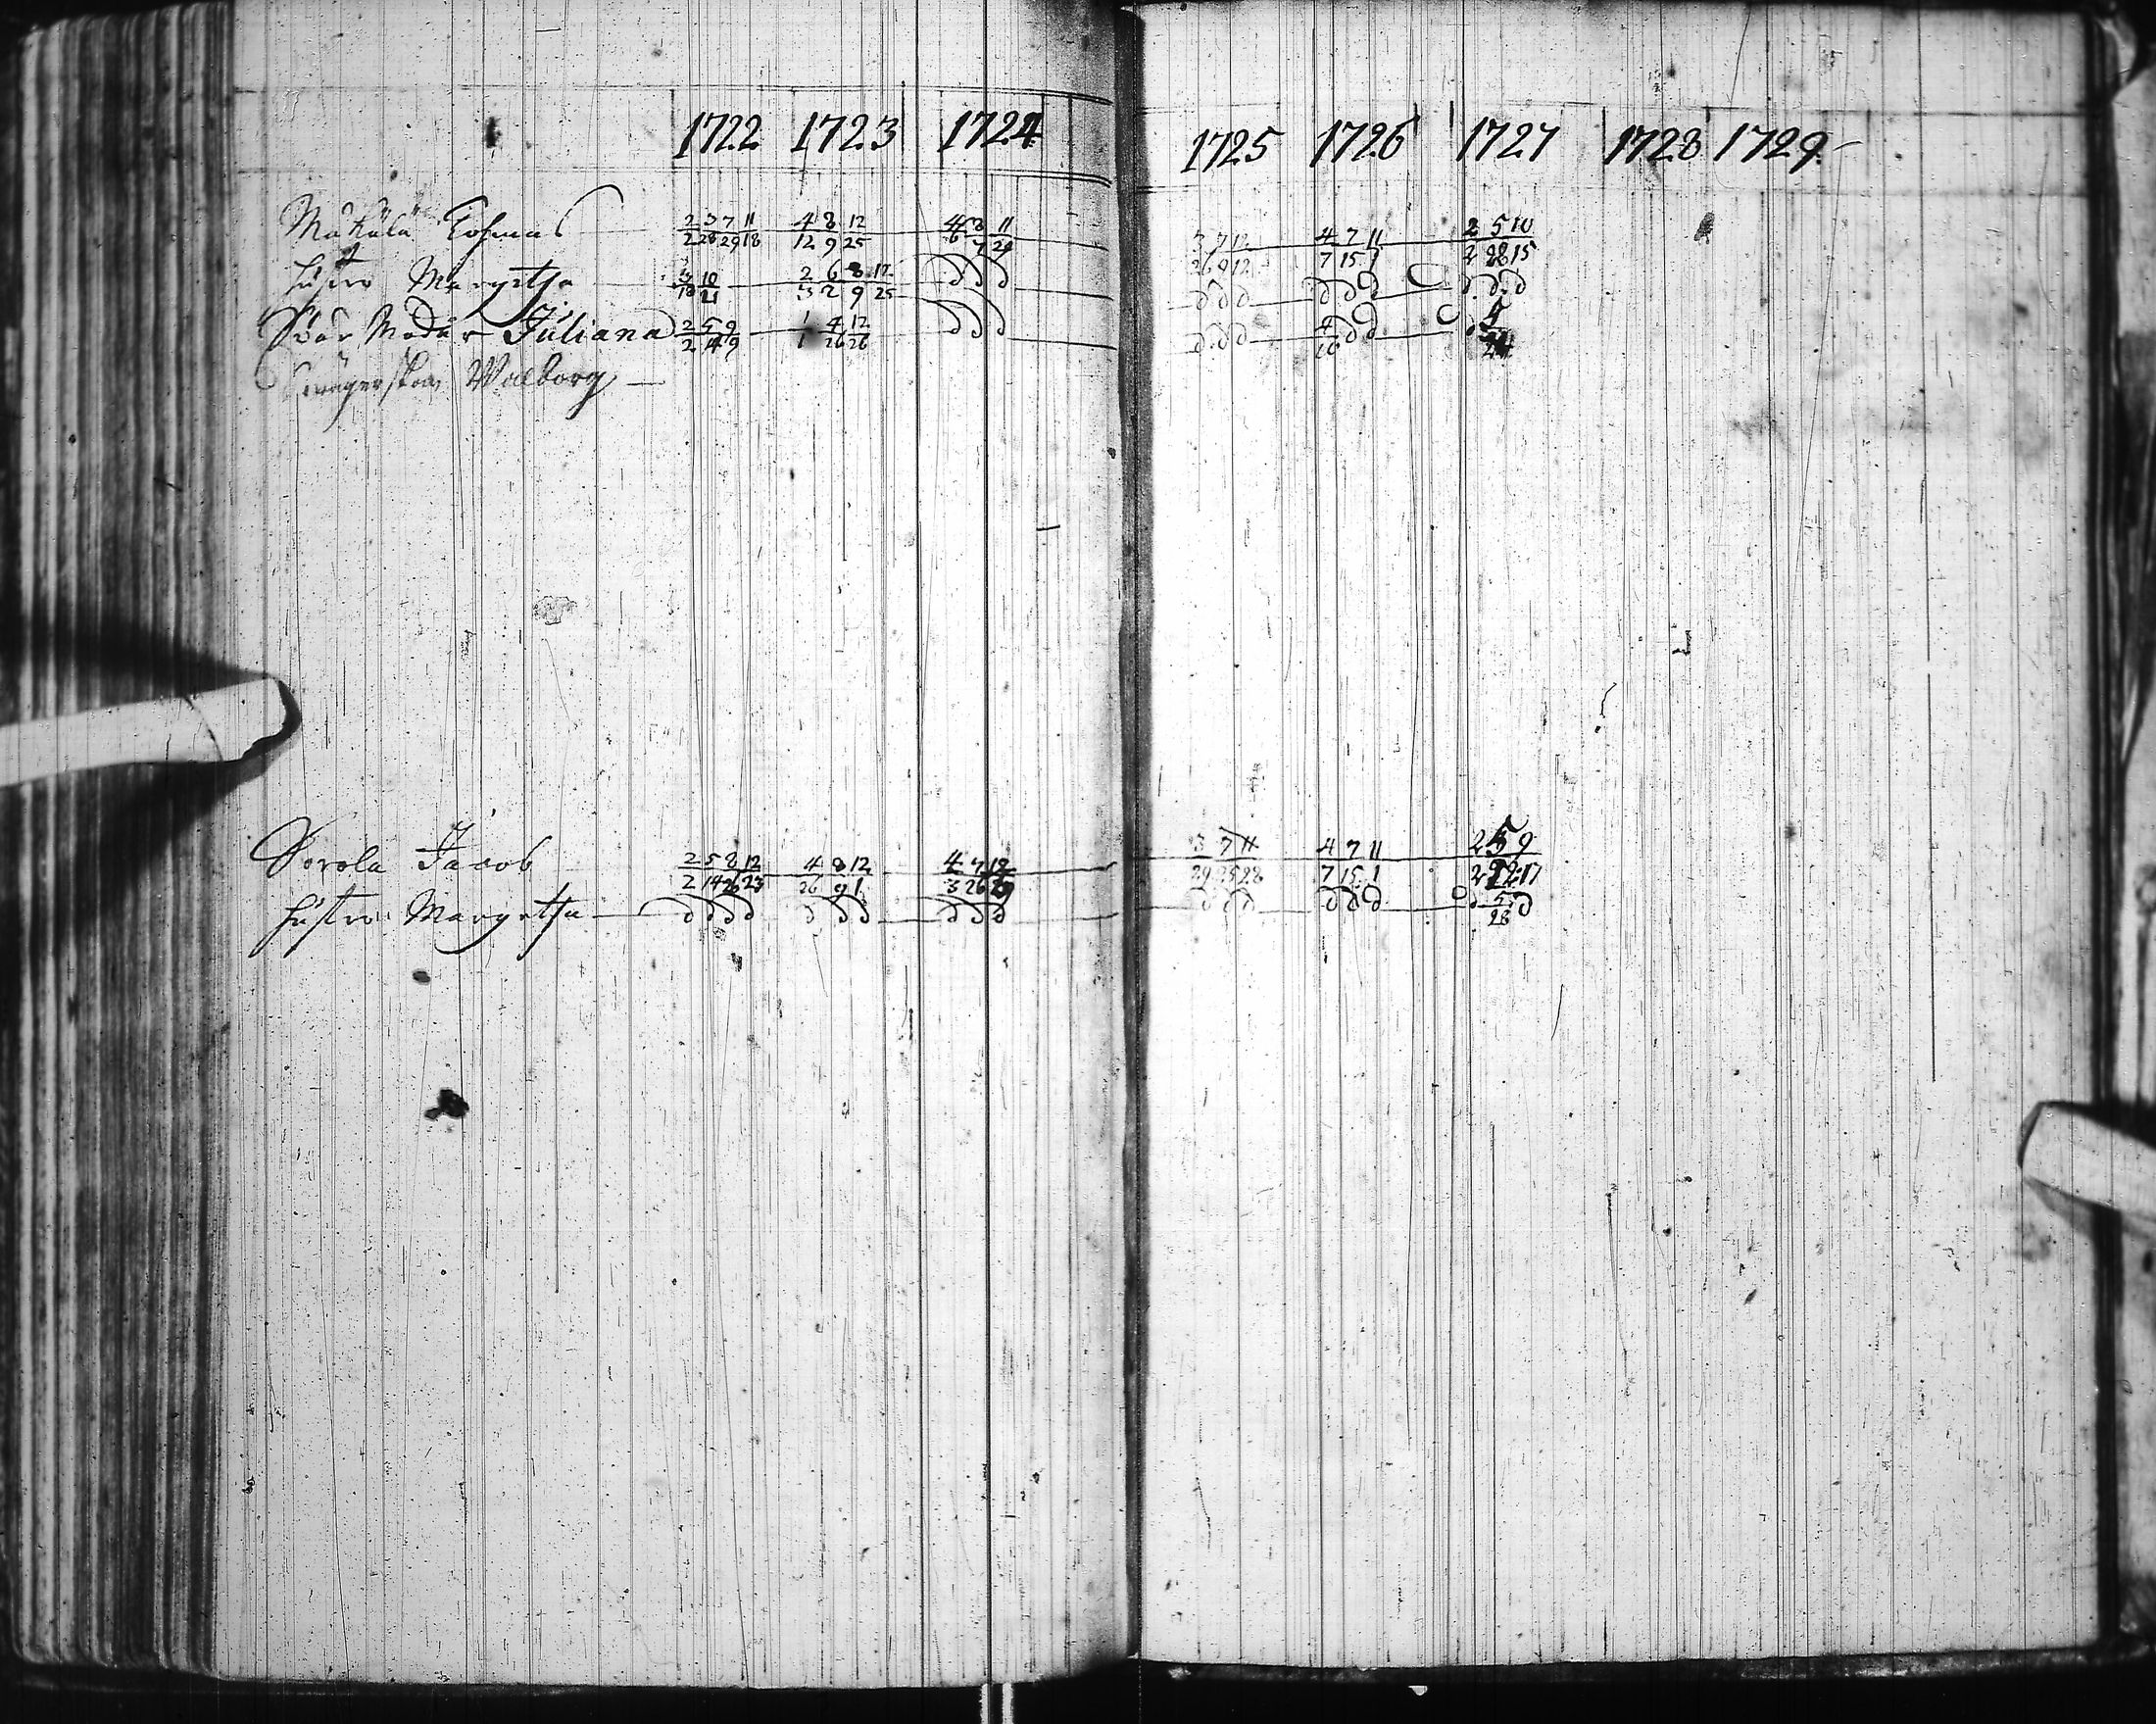 1722 1723 1724 1725 1726 1727 1728 1729
Mäkälä Tohmas 2 3 7 11 4 8 12 4 8 11 3 7 12 4 7 11 2 5 10
2 28 29 18 12 9 25 6 7 29 26 9 12 7 15 1 2 28 15
hustro Margetha 3 10 2 6 8 12 d d d d d d d d d d d d
18 21 3 2 9 25
Svär Moder Juliana 2 5 9 1 4 12 d d d d d d 4 d d d 4
2 14 9 1 26 26 26 24
Swägerskan Walborg
Sorola Jacob 2 5 8 12 4 8 12 4 7 12 3 7 11 4 7 11 2 5 9
2 14 26 23 26 9 1 3 26 29 29 25 28 7 15 1 2 12 17
hustro Margetha d d d d d d d d d d d d d d d d d 5 d
28